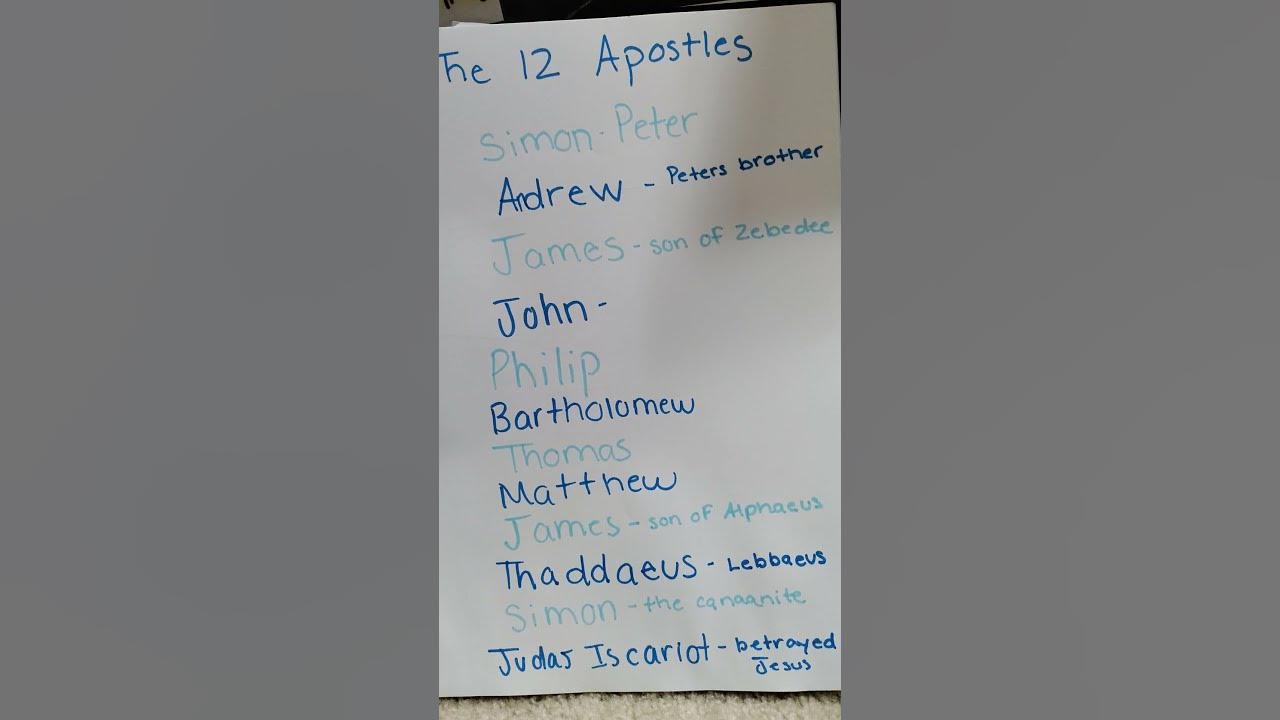 The 12 Apostles
Simon - Peter
Andrew - Peters brother
James - son of Zebedee
John -
Philip
Bartholomew
Thomas
Matthew
James - son of Alphaeus
Thaddaeus - Lebbaeus
Simon - the canaanite
Judas Iscariot - betrayed
Jesus